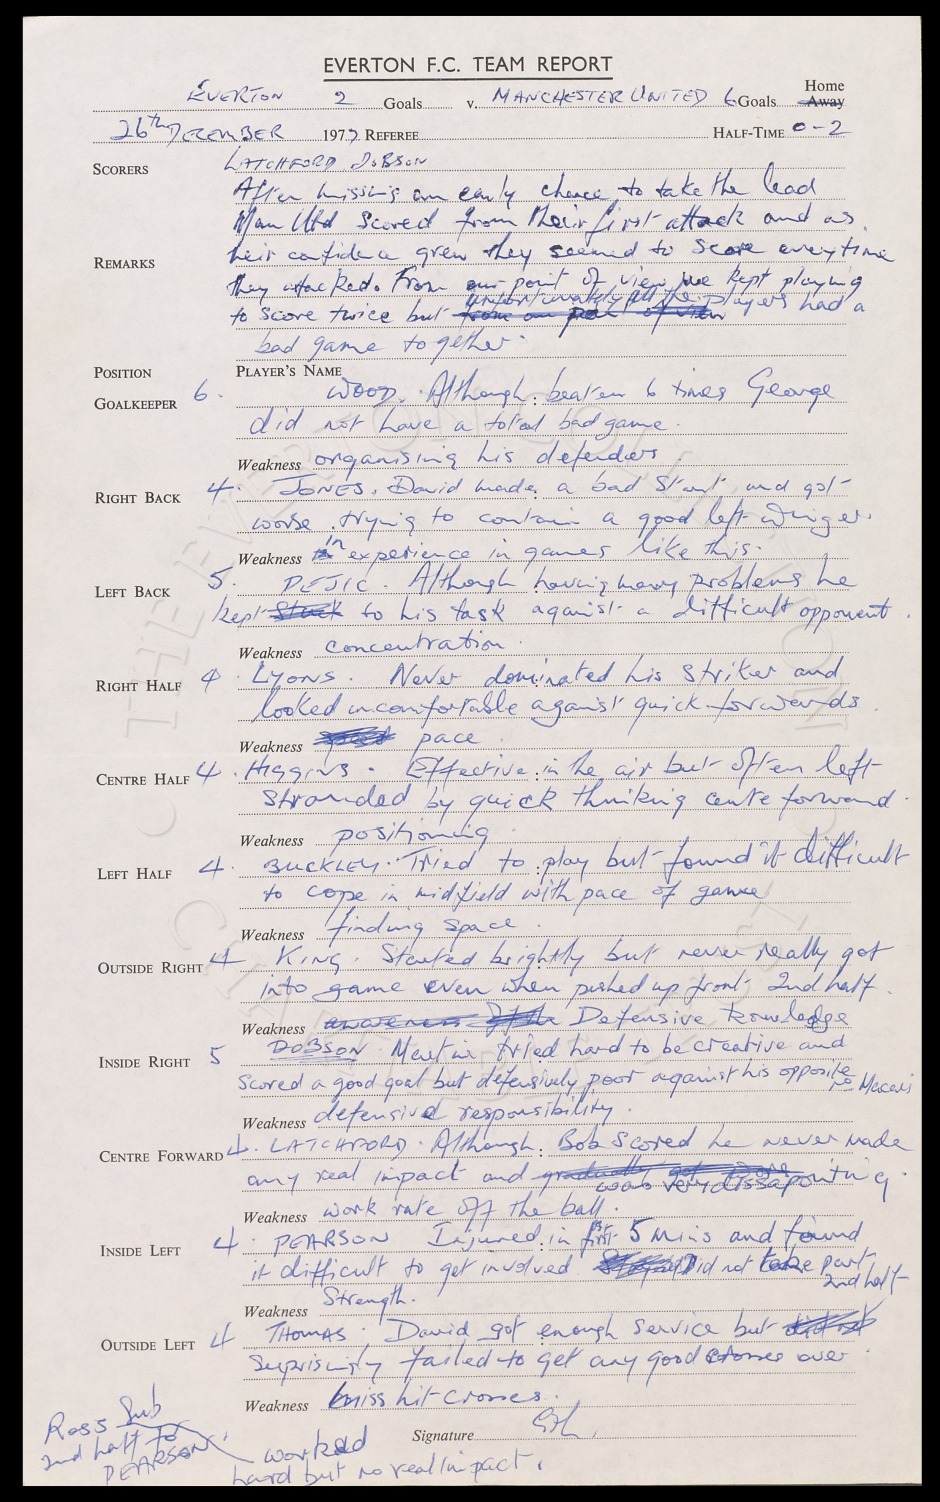 EVERTON F.C. TEAM REPORT
EVERTON 2 Goals v. MANCHESTER UNITED 6 Goals Home Away
26th DECEMBER 1977 REFEREE HALF-TIME 0-2
SCORERS LATCHFORD DOBSON
After missing an early chance to take the lead
Man Utd scored from their first attack and as
REMARKS heir confidence grew they seemed to score everytime
they attacked. From our point of view we kept playing
to score twice but unfortunately all the players had a
bad game together.
POSITION PLAYER'S NAME
GOALKEEPER 6. WOOD. Although beaten 6 times George
did not have a total bad game.
Weakness organising his defenders
RIGHT BACK 4. JONES. David made a bad start and got
worse trying to contain a good left winger.
Weakness inexperience in games like this.
LEFT BACK 5. PEJIC. Although having many problems he
kept stuck to his task against a difficult opponent.
Weakness concentration.
RIGHT HALF 4. LYONS. Never dominated his striker and
looked uncomfortable against quick forwards.
Weakness pace
CENTRE HALF 4. HIGGINS. Effective in the air but often left
stranded by quick thinking centre forward.
Weakness positioning
LEFT HALF 4. BUCKLEY. Tried to play but found it difficult
to cope in midfield with pace of game
Weakness finding space
OUTSIDE RIGHT 4 KING. Started brightly but never really got
into game even when pushed up front 2nd half.
Weakness awareness Defensive knowledge
INSIDE RIGHT 5 DOBSON. Martin tried hard to be creative and
scored a good goal but defensively poor against his opposite no Macari
Weakness defensive responsibility.
CENTRE FORWARD 4. LATCHFORD. Although Bob scored he never made
any real impact and was very dissapointing.
Weakness work rate off the ball.
INSIDE LEFT 4. PEARSON Injured in first 5 mins and found
it difficult to get involved Did not take part
2nd half
Weakness Strength.
OUTSIDE LEFT 4 THOMAS. David got enough service but did not
surprisingly failed to get any good crosses over
Weakness miss hit crosses.
Signature
Ross Sub
2nd half to
PEARSON. worked
hard but no real impact.